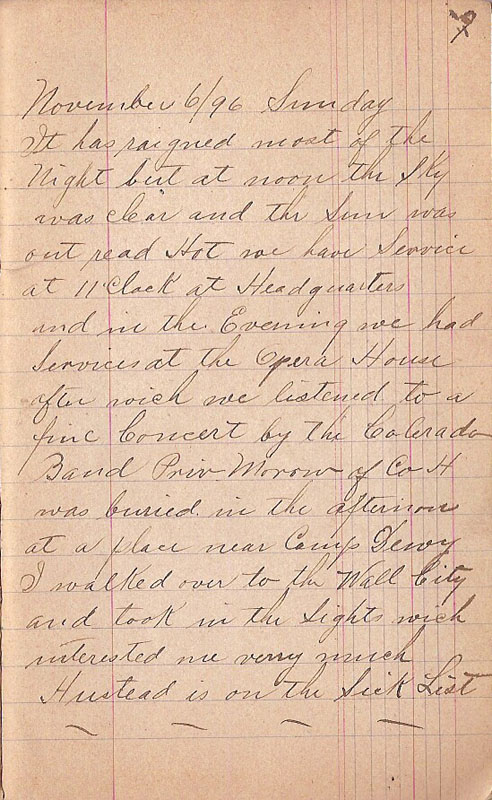 November 6/96 Sunday
It has raigned most of the
Night but at noon the Sky
was clear and the Sun was
out read Hot we have Service
at 11 Clock at Headquarters
and in the Evening we had
Services at the Opera House
after wich we listened to a
fine Concert by the Colerado
Band Priv Morow of Co H
was buried in the afternoon
at a place near Camp Dewy
I walked over to the Wall City
and took in the Sights wich
interested me verry much
Hustead is on the Sick List